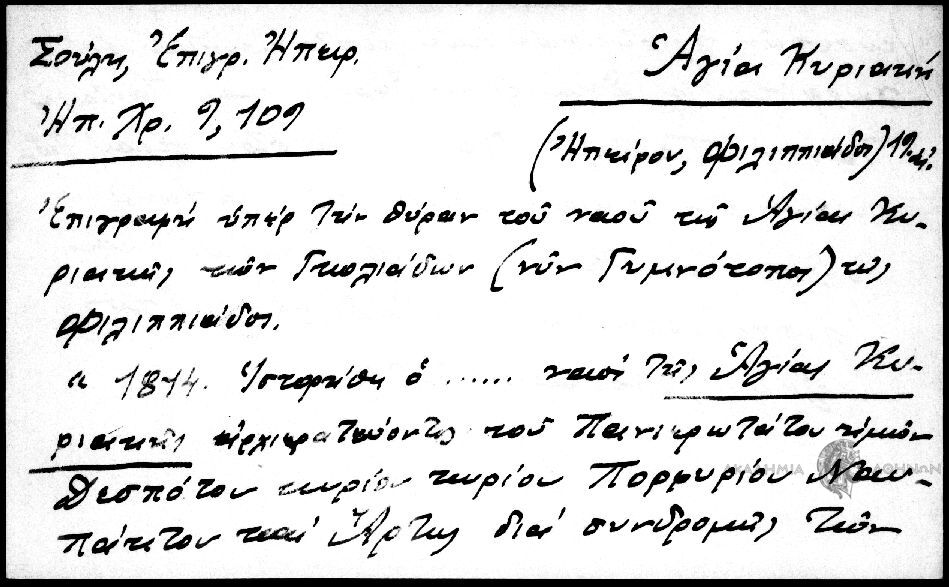 Σούλη, Ἐπιγρ. Ἠπειρ.
Ἠπ. Χρ. 9, 109
Ἁγία Κυριακή
(Ἠπείρου, Φιλιππιάδος) 19 αἰ.
Ἐπιγραφή ὑπέρ τήν θύραν τοῦ ναοῦ τῆς Ἁγίας Κυ-
ριακῆς τῶν Γκολιάδων (νῦν Γυμνότοπος) τῆς
Φιλιππιάδος.
" 1814. Ἱστορήθη ὁ ...... ναός τῆς Ἁγίας Κυ-
ριακῆς ἀρχιερατεύοντος τοῦ Πανιερωτάτου ἡμῶν
Δεσπότου κυρίου κυρίου Πορφυρίου Ναυ-
πάκτου καί Ἄρτης διά συνδρομῆς τῶν
ΑΚΑΔΗΜΙΑ ΑΘΗΝΩΝ